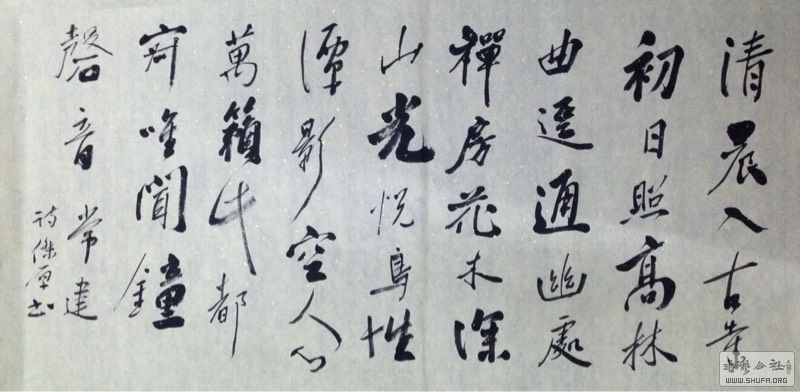 清晨入古寺
初日照高林
曲逕通幽處
禪房花木深
山光悅鳥性
潭影空人心
萬籟此都
寂唯聞鐘
磬音 常建
詩傑
书法公社
WWW.SHUFA.ORG